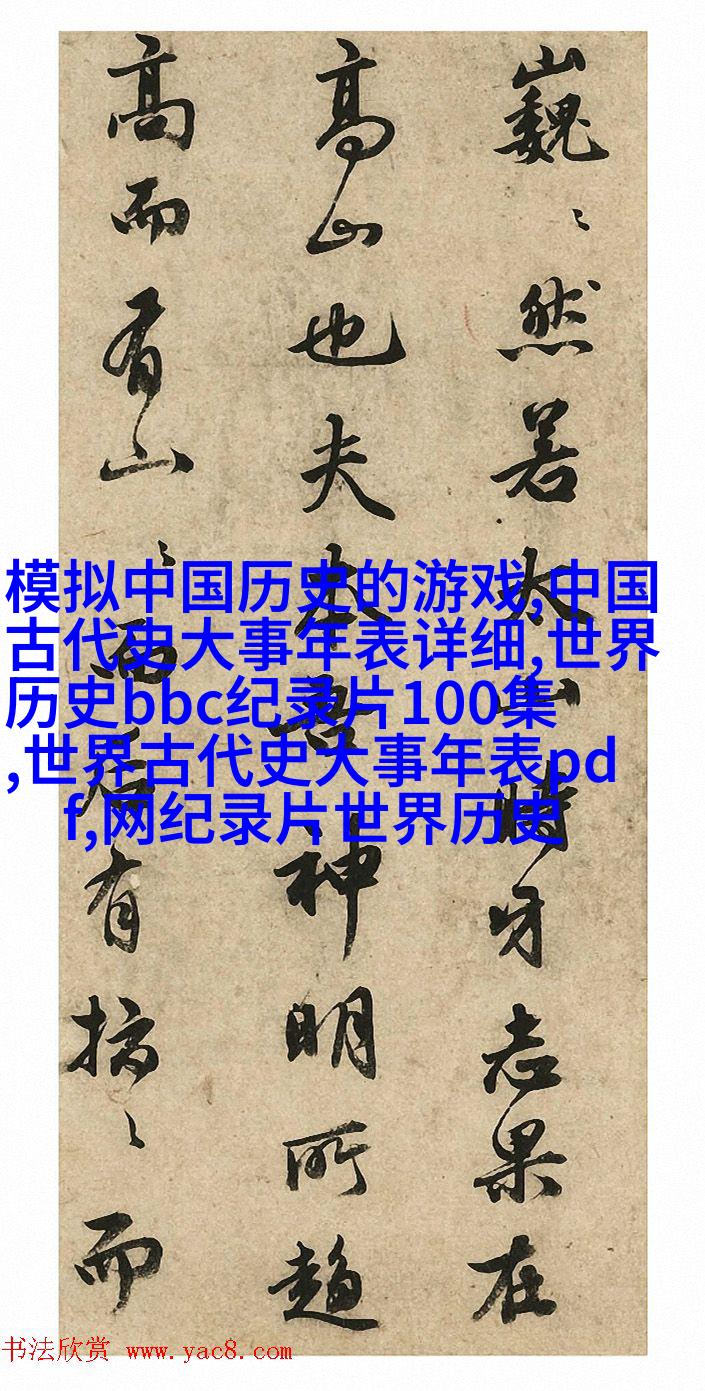 巍〻然若太山時牙志果在
高山也夫本吾神明所趨
高而有山〻而后有〻而
模拟中国历史的游戏,中国
古代史大事年表详细,世界
历史bbc纪录片100集
,世界古代史大事年表pd
f,网纪录片世界历史
书法欣赏 www.yac8.com